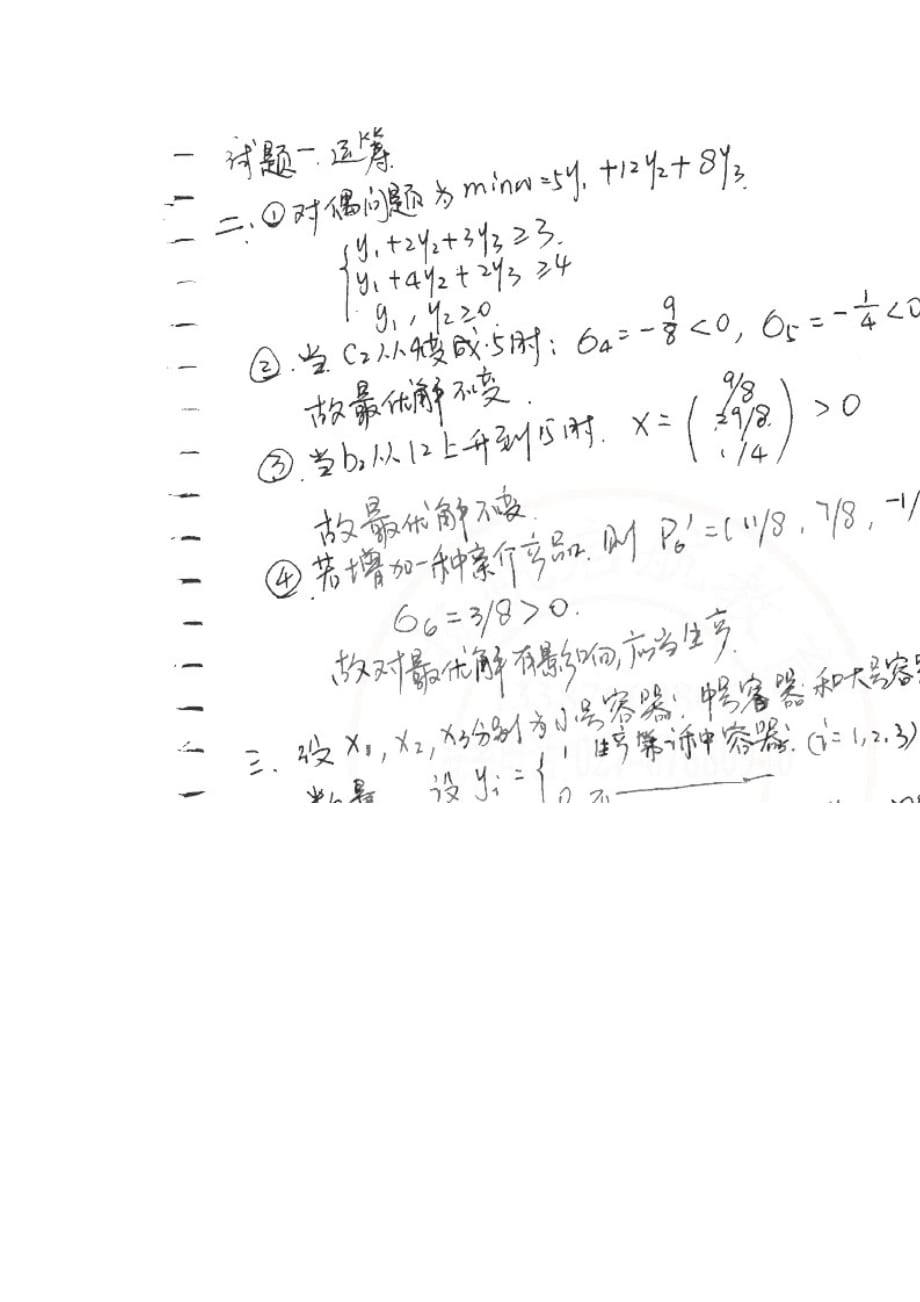 试题一. 运筹
二. ① 对偶问题为 min w=5y₁+12y₂+8y₃.
{ y₁+2y₂+3y₃≥3.
y₁+4y₂+2y₃≥4
y₁, y₂≥0
②. 当 C₂从4变成5时: σ₄=-9/8<0, σ₅=-1/4<0
故最优解不变.
③. 当b₂从12上升到15时. X=(9/8 29/8 1/4) >0
故最优解不变.
④. 若增加一种产品. 则 P₆'=(11/8, 7/8, -1/
σ₆=3/8>0.
故对最优解有影响, 应当生产.
三. 设 x₁, x₂, x₃分别为小号容器, 中号容器和大号容器
数量 设 yᵢ={ 1 生产第i种容器. (i=1,2,3)
0 否